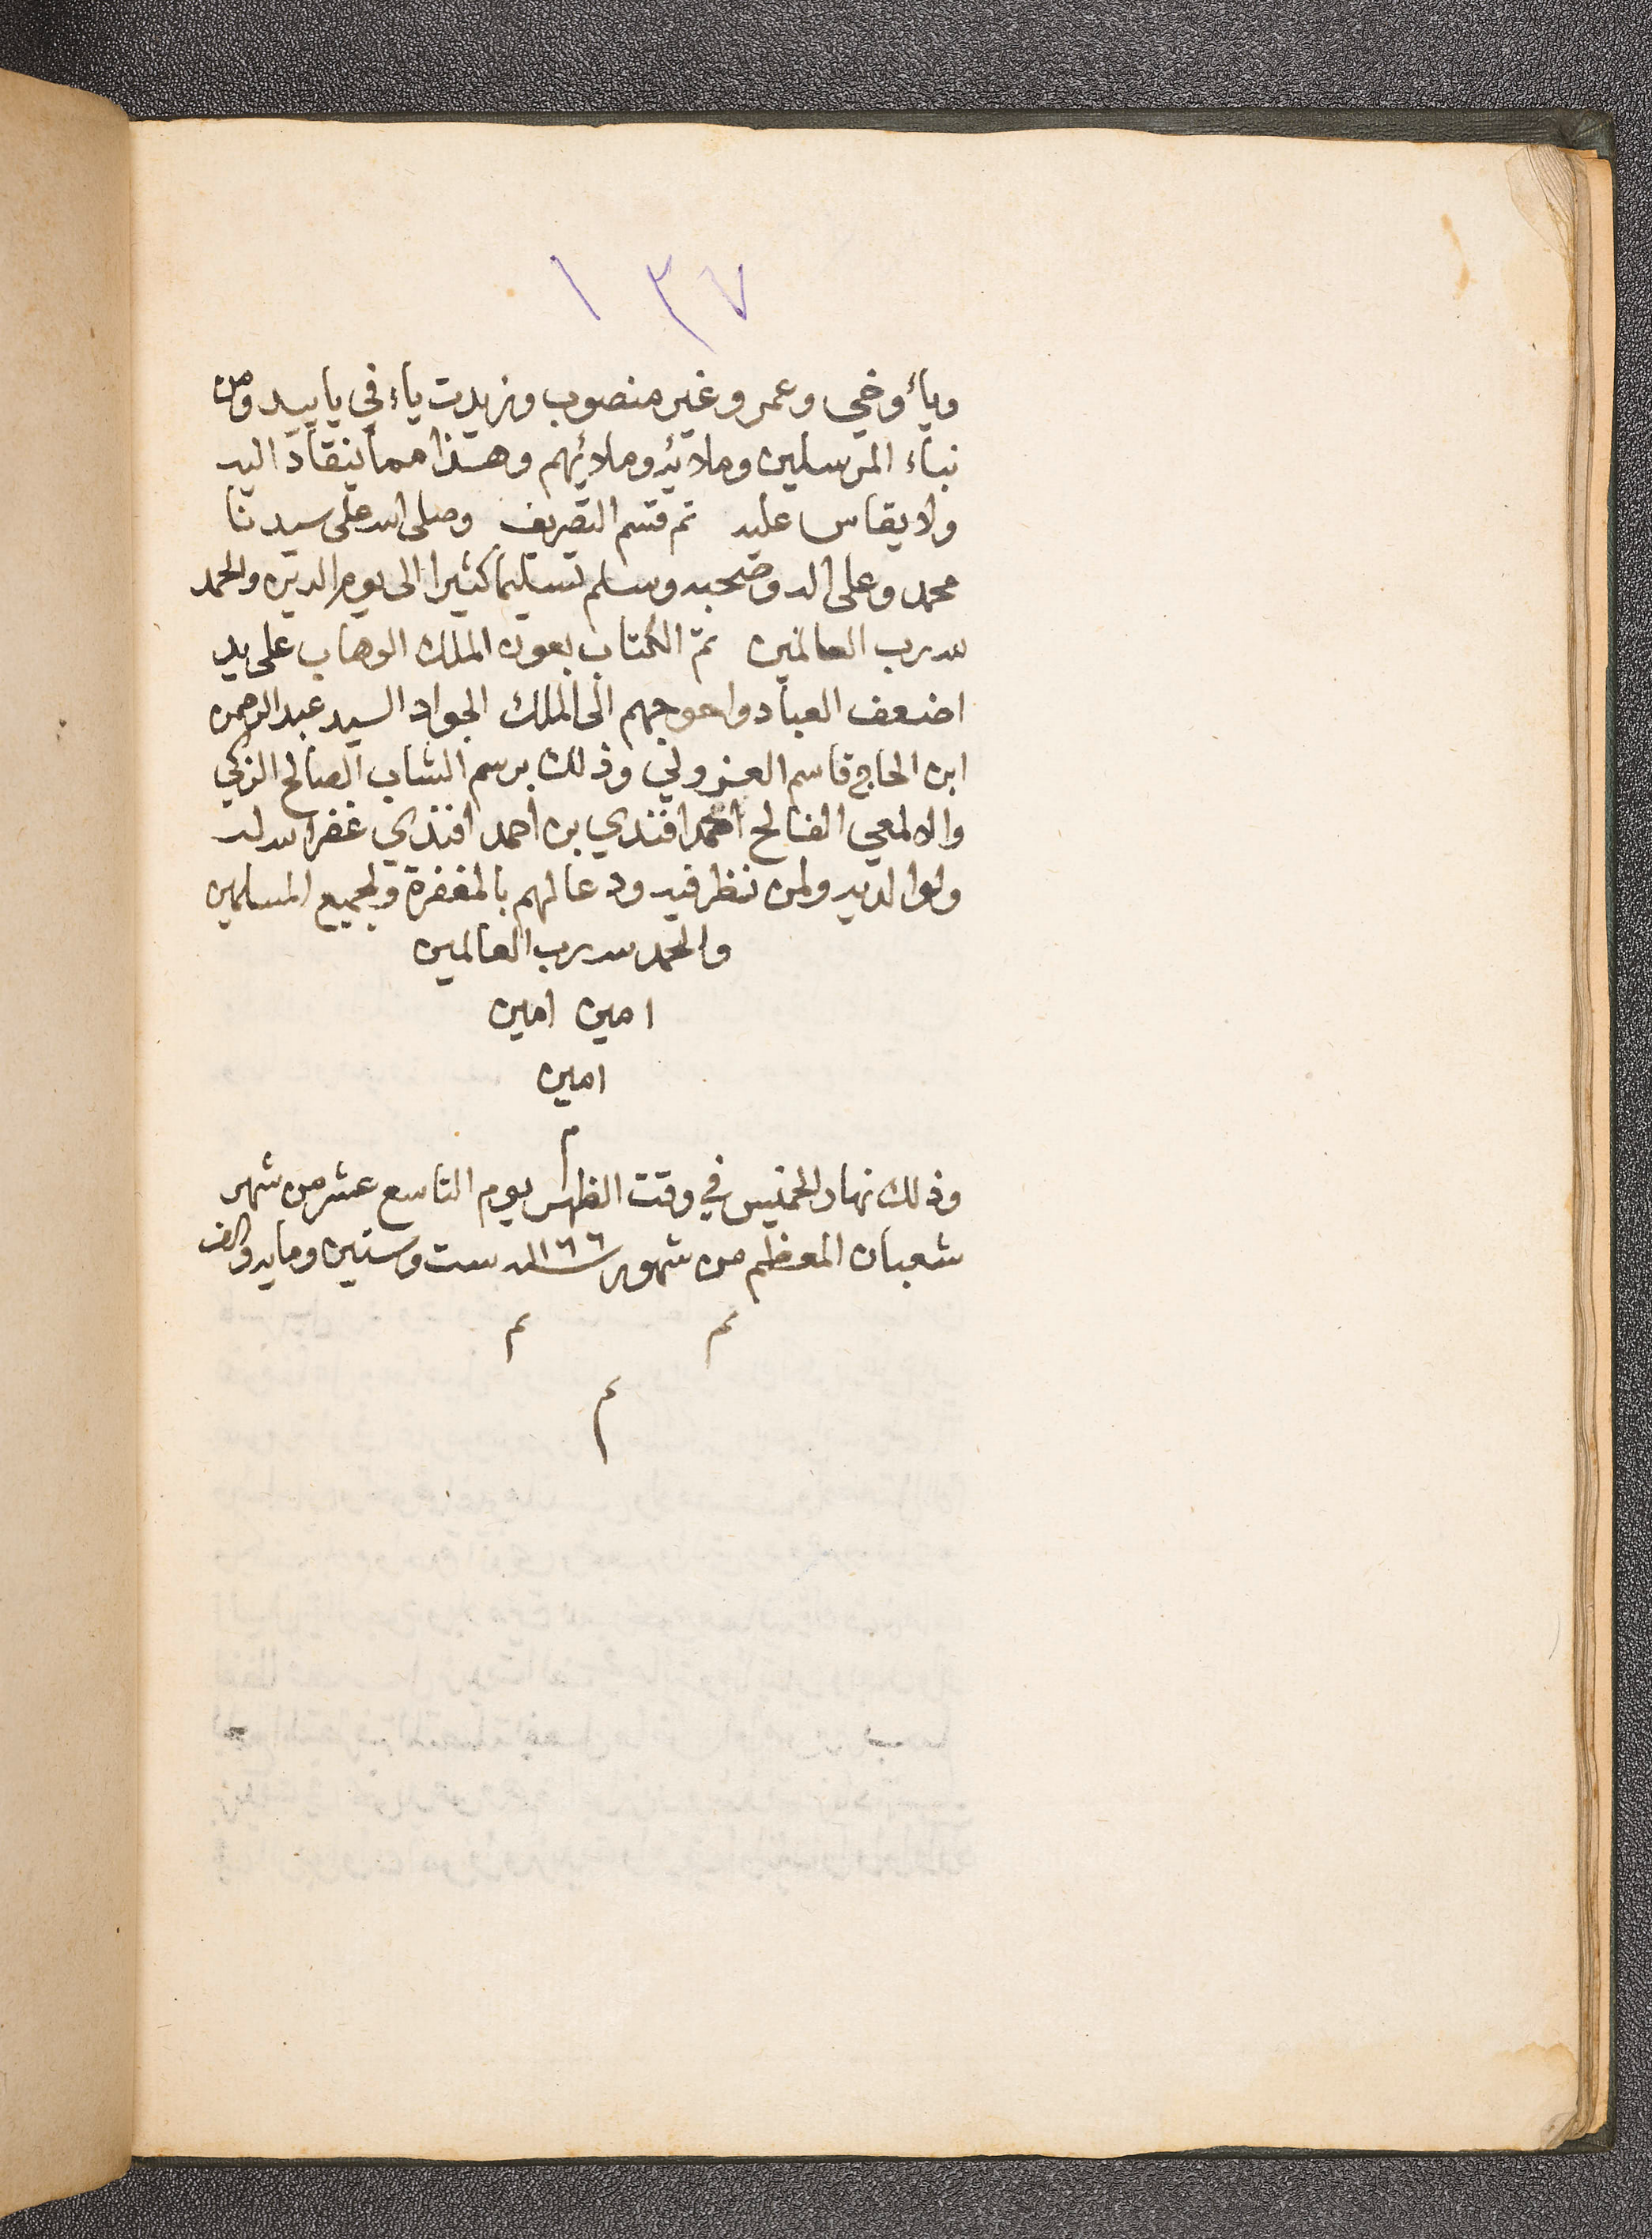 ١٣٧
ويأوخي وعمرو غير منصوب وزيدت ياء في باييد ومن
نباء المرسلين وملائه وملائهم وهذا مما ينقاد اليه
ولا يقاس عليه تم قسم التصريف وصلى الله على سيدنا
محمد وعلى اله وصحبه وسلم تسليما كثيرا الى يوم الدين والحمد
لله رب العالمين تم الكتاب بعون الملك الوهاب على يد
اضعف العباد واحوجهم الى الملك الجواد السيد عبد الرحمن
ابن الحاج قاسم وذلك برسم الشاب الصالح الزكي
والالمعي الفالح افندي بن احمد افندي غفر الله له
ولوالديه ولمن نظر فيه ودعا لهم بالمغفرة ولجميع المسلمين
والحمد لله رب العالمين
امين امين
امين
م
وذلك نهار الخميس في وقت الظهر يوم التاسع عشر من شهر
شعبان المعظم من شهور سنة ١١٦٦ ست وستين ومايه والف
تم تم
تم